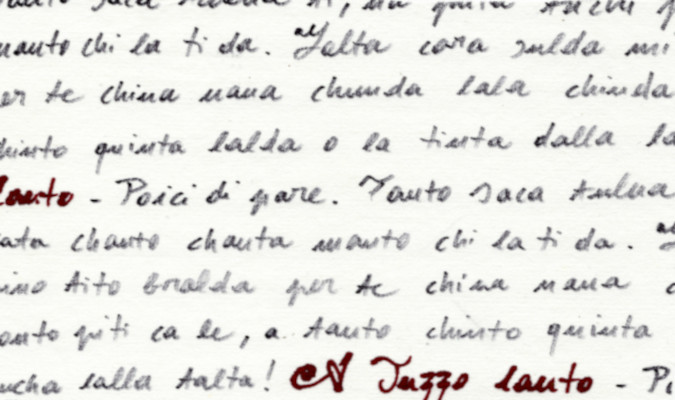 manto chi la ti da. "Yalta cara sulda mi
er te china nana chunda lala chinda
hinto quinta lalda o la tinta dalla la
lanto - Poici di pare. Tanto saca tulna
ata chanto chanta manto chi la ti da.
ino tito bralda per te china nana
onto piti ca le, a tanto chinto quinta
ucha lalla talta! A Tuzzo lanto - Pi